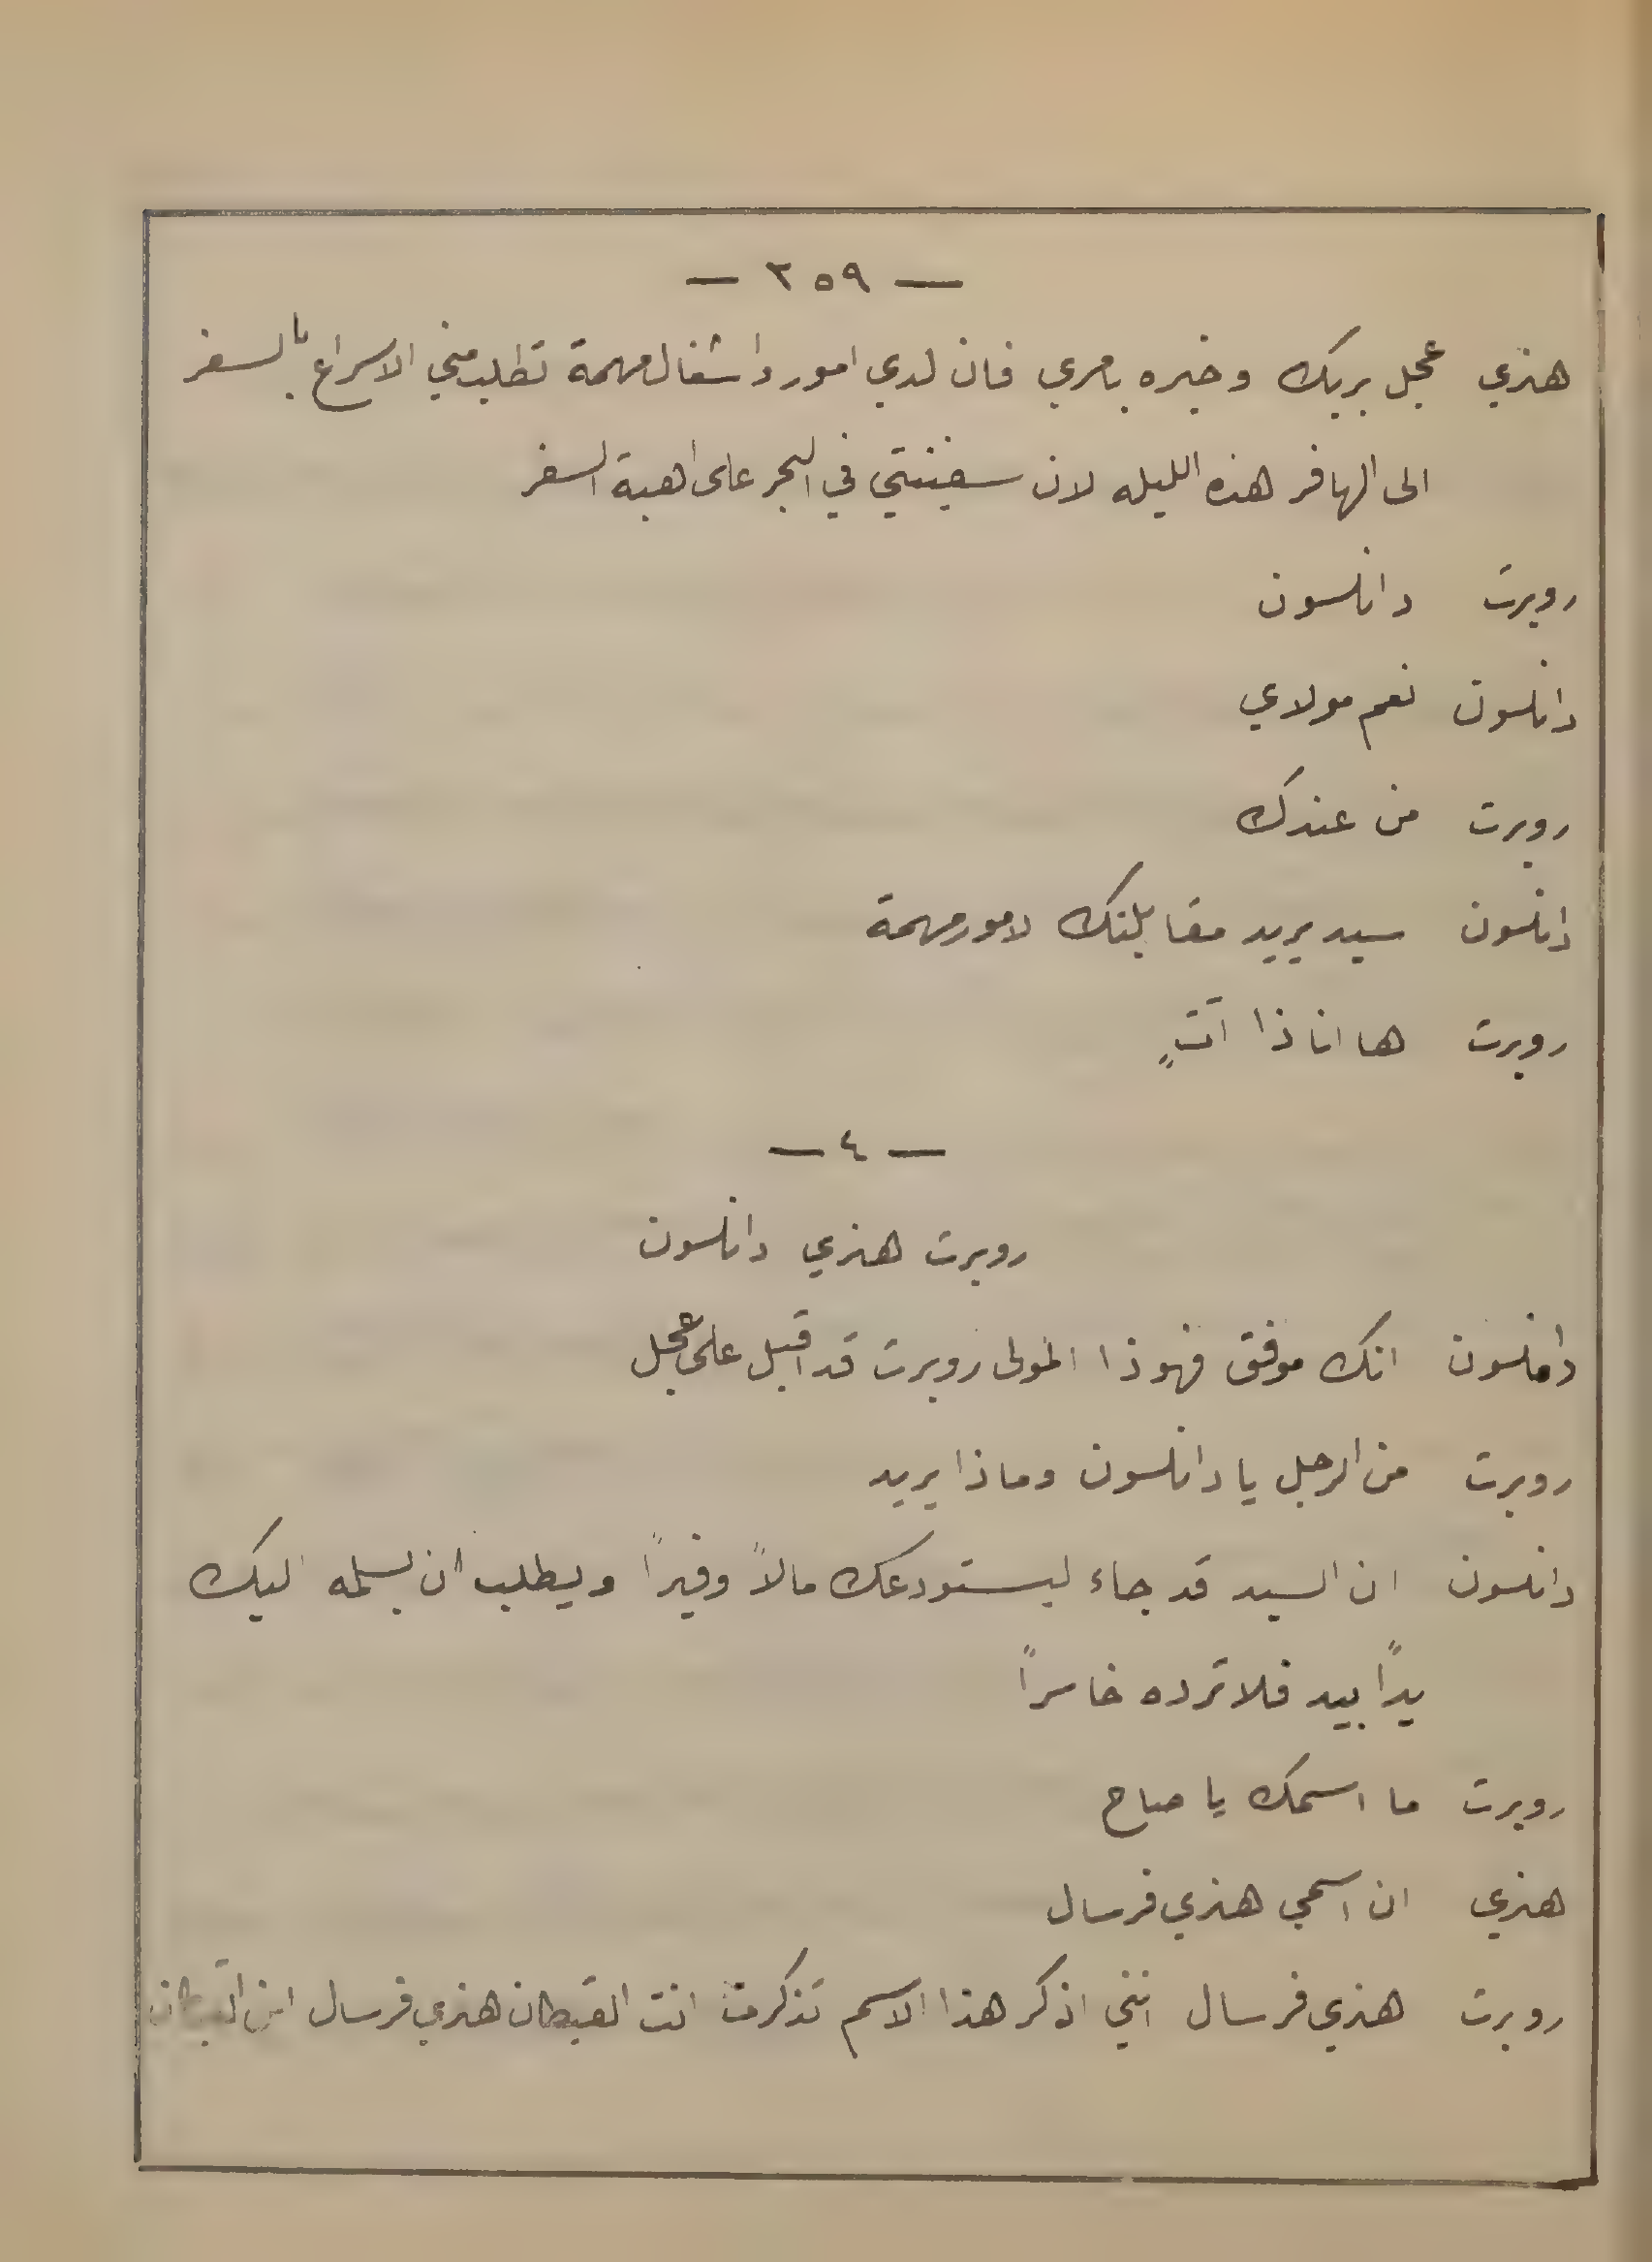 — ٢٥٩ —
هنري عجل بربك وخبره بامري فان لدي امور واشغال مهمة تطلب مني الاسراع بالسفر
الى الهافر هذه الليله لان سفينتي في البحر على اهبة السفر
روبرت دانلسون
دانلسون نعم مولاي
روبرت من عندك
دانلسون سيد يريد مقابلتك لامور مهمة
روبرت ها انا ذا اتٍ
— ٤ —
روبرت هنري دانلسون
دانلسون انك موفق فهوذا المولى روبرت قد اقبل على عجل
روبرت من الرجل يا دانلسون وماذا يريد
دانلسون ان السيد قد جاء ليستودعك مالاً وفيراً ويطلب ان يسلمه اليك
يداً بيد فلا ترده خاسراً
روبرت ما اسمك يا صاح
هنري ان اسمي هنري فرسال
روبرت هنري فرسال انني اذكر هذا الاسم تذكرت انت القبطان هنري فرسال ابن القبطان